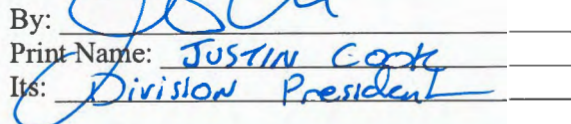 By:
Print Name: JUSTIN COOK
Its: Division President